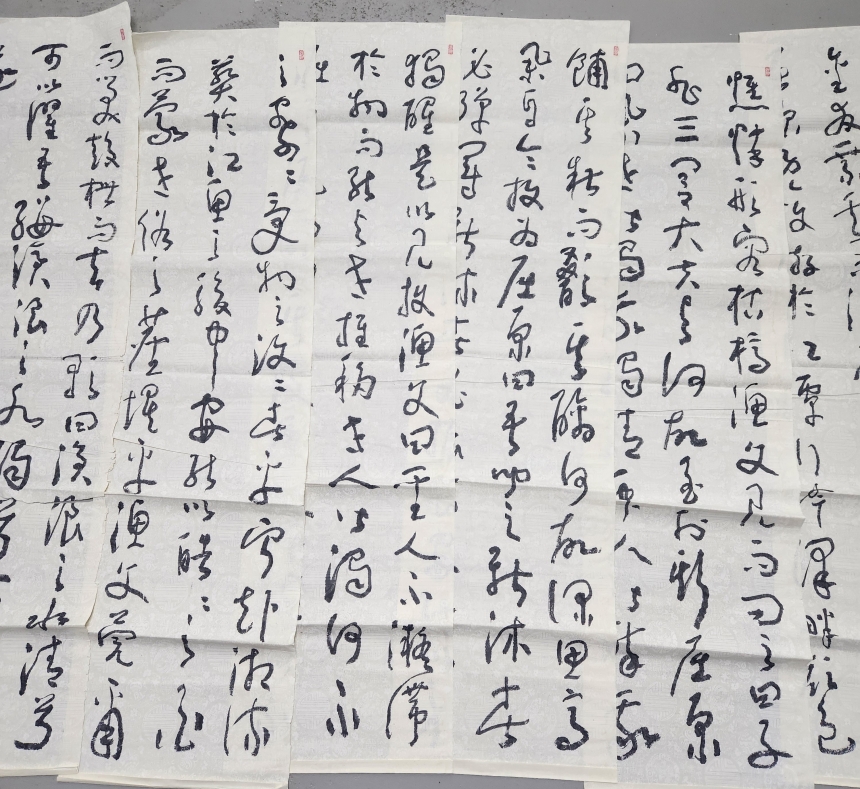 既放游於江潭行吟澤畔顏色
憔悴形容枯槁漁父見而問之曰子
非三閭大夫與何故至於斯屈原
曰舉世皆濁我獨清衆人皆醉我
餔其糟而歠其醨何故深思高
舉自令放為屈原曰吾聞之新沐者
必彈冠新
獨醒是以見放漁父曰聖人不凝滯
於物而能與世推移世人皆濁何不
之察察受物之汶汶者乎寧赴湘流
葬於江魚之腹中安能以皓皓之白
而蒙世俗之塵埃乎漁父莞爾
而笑鼓枻而去乃歌曰滄浪之水清兮
可以濯吾纓滄浪之水濁兮